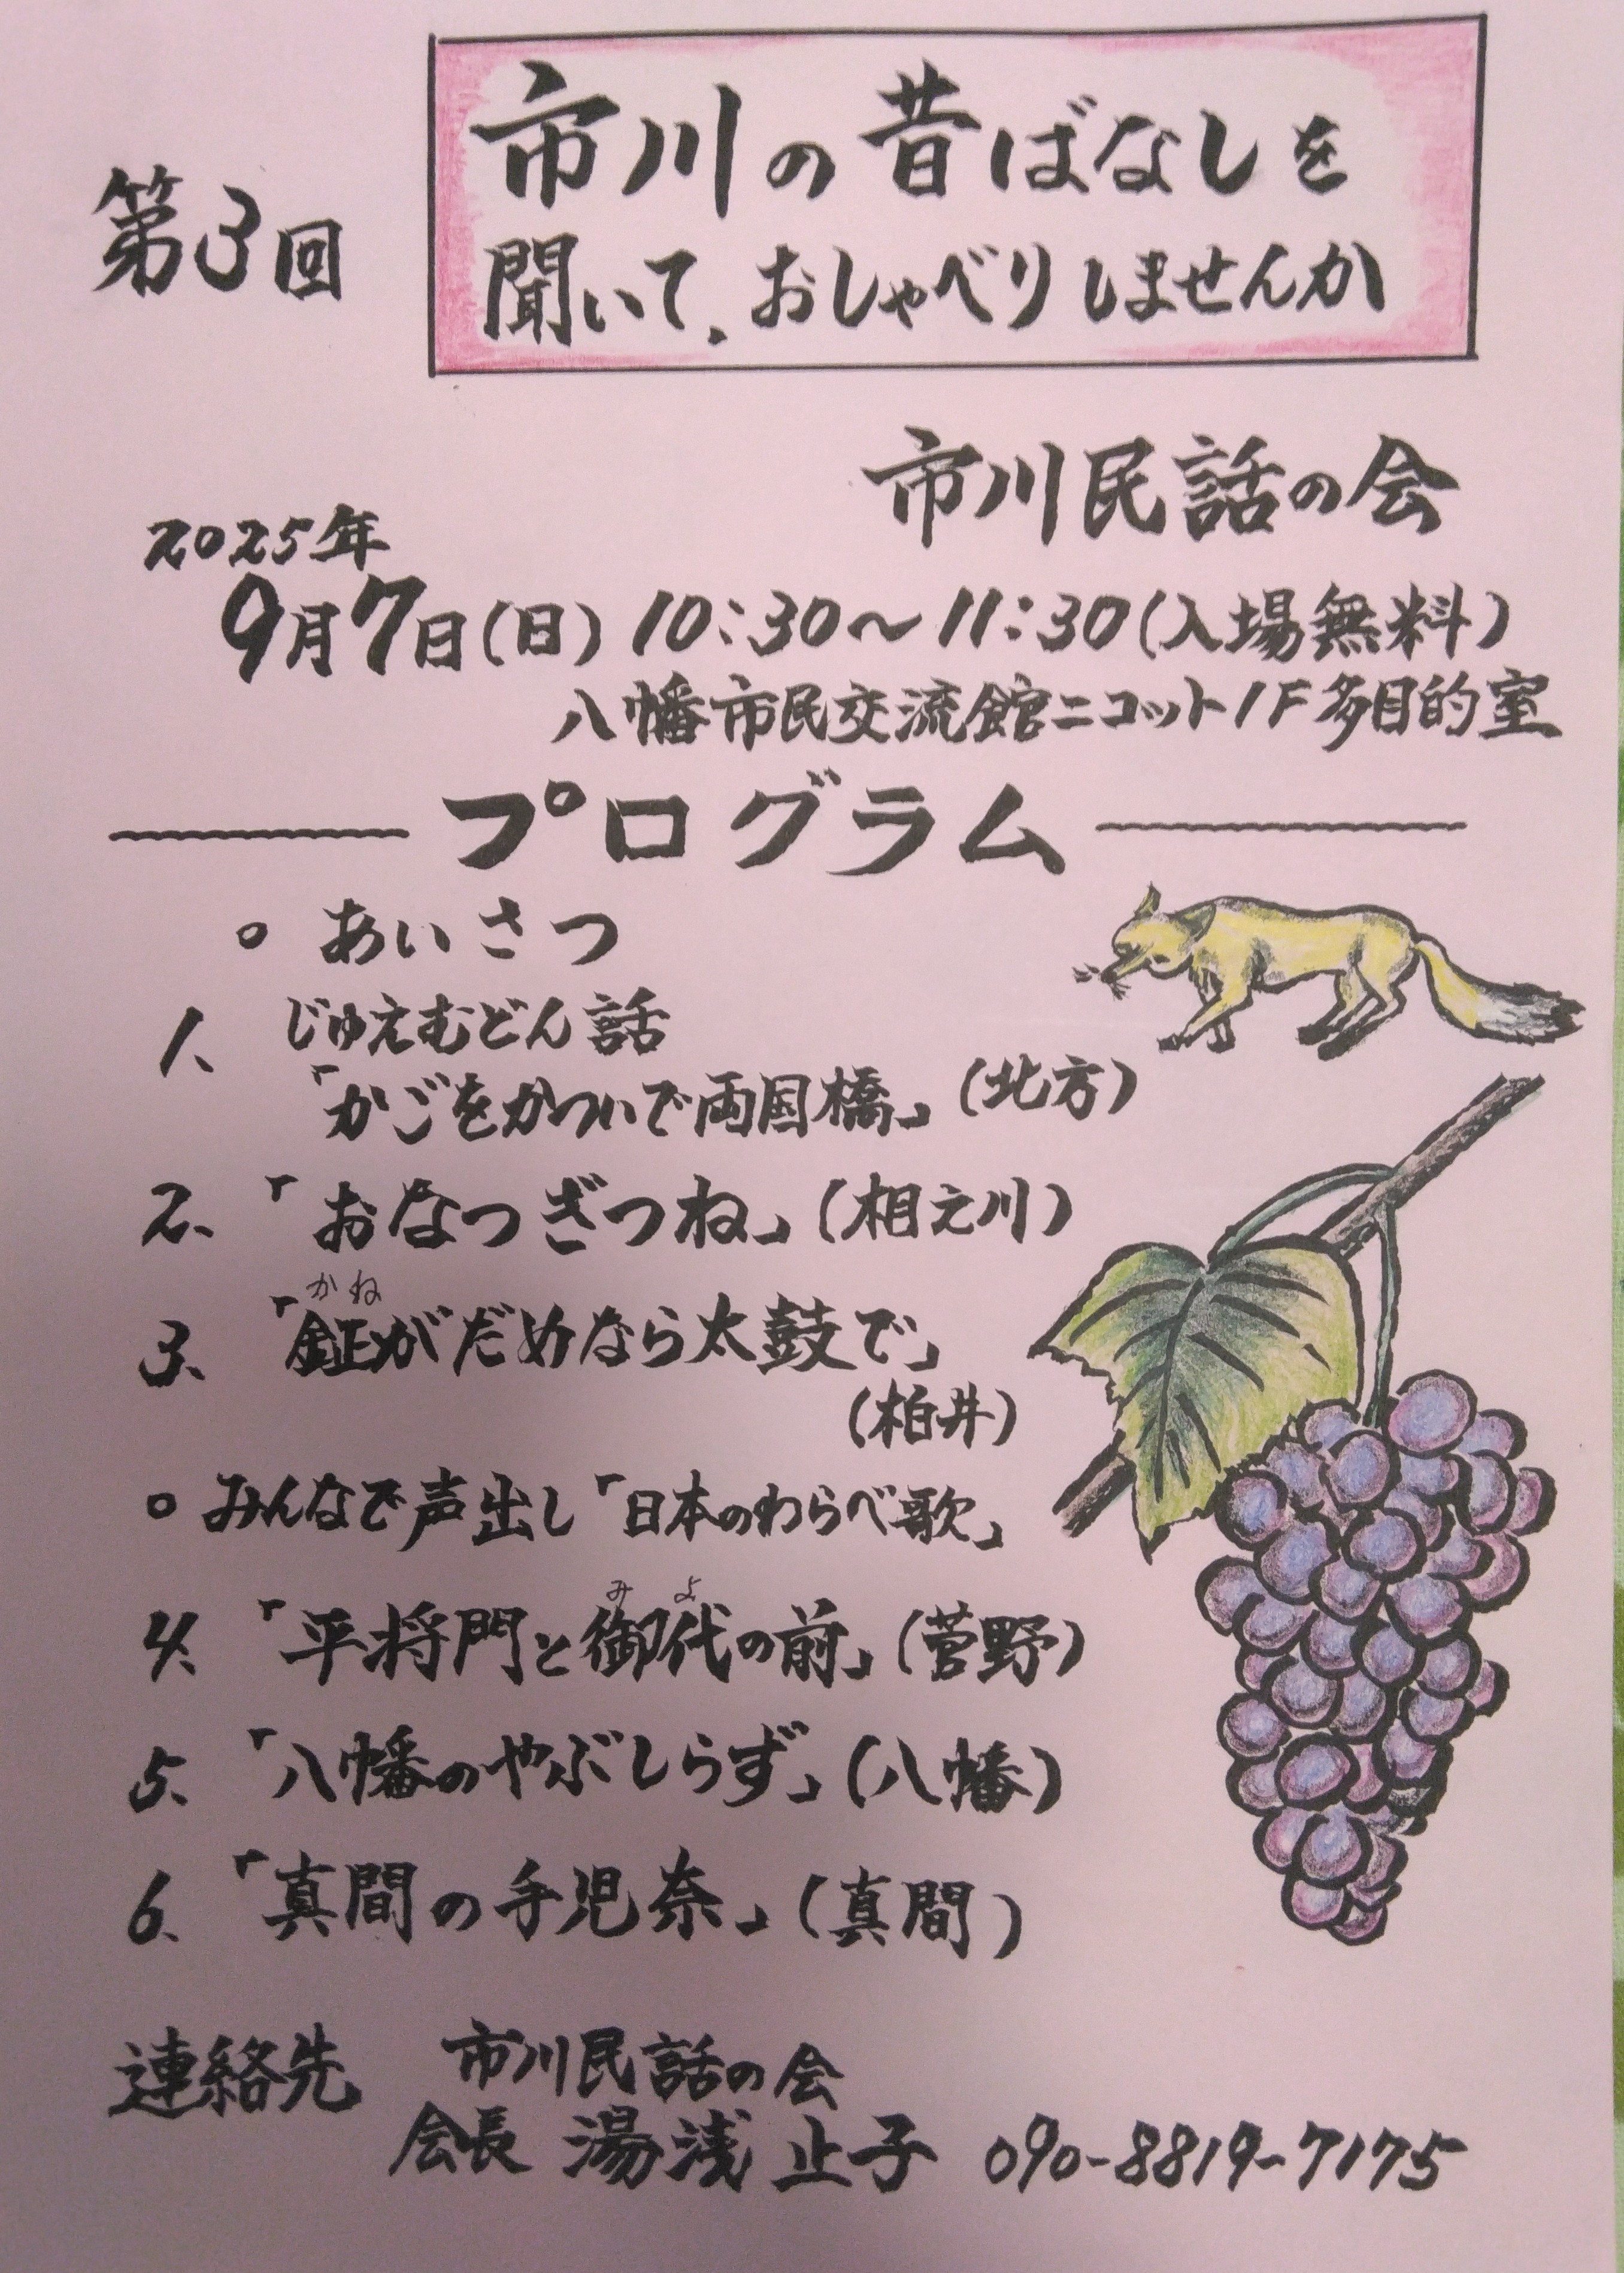 第3回
市川の昔ばなしを
聞いて、おしゃべりしませんか
市川民話の会
2025年
9月7日(日) 10:30〜11:30(入場無料)
八幡市民交流館ニコット1F多目的室
プログラム
○ あいさつ
1、 じゅえむどん話
「かごをかついで両国橋」(北方)
2、「おなつぎつね」(相之川)
かね
3、「鉦がだめなら太鼓で」
(柏井)
○ みんなで声出し「日本のわらべ歌」
みよ
4、「平将門と御代の前」(菅野)
5、「八幡のやぶしらず」(八幡)
6、「真間の手児奈」(真間)
連絡先 市川民話の会
会長 湯浅止子 090-8819-7175